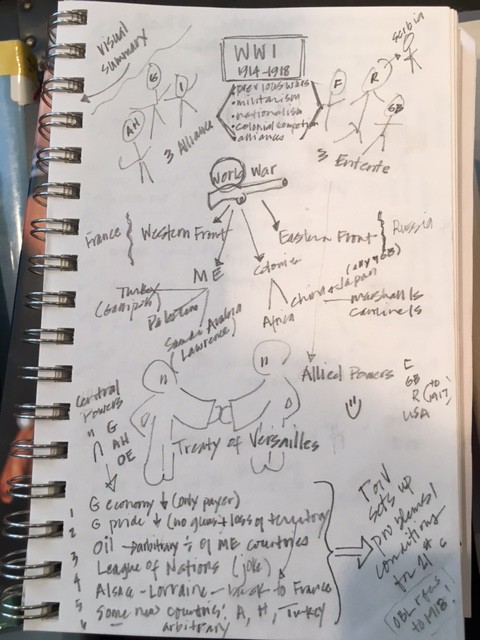 visual
summary
WWI
1914-1918
• previous wars
• militarism
• nationalism
• colonial competition
• alliances
G
I
AH
3 Alliance
F
R
GB
3 Entente
World War
France
Western Front
Eastern Front
Russia
ME
Colonies
Turkey
(Gallipoli)
Palestine
Saudi Arabia
(Lawrence)
Africa
China + Japan
(ally GB)
Marshalls
Carolines
Allied Powers
F
GB
R (to 1917)
USA
Central
Powers
G
AH
OE
Treaty of Versailles
1 G economy ↓ (only payer)
2 G pride ↓ (no guns + loss of territory)
3 Oil → arbitrary ÷ of ME countries
4 League of Nations (joke)
5 Alsace-Lorraine – back to France
6 Some new countries: A, H, Turkey
arbitrary
TofV
sets up
problems/
conditions
for 21st c
to 1918!